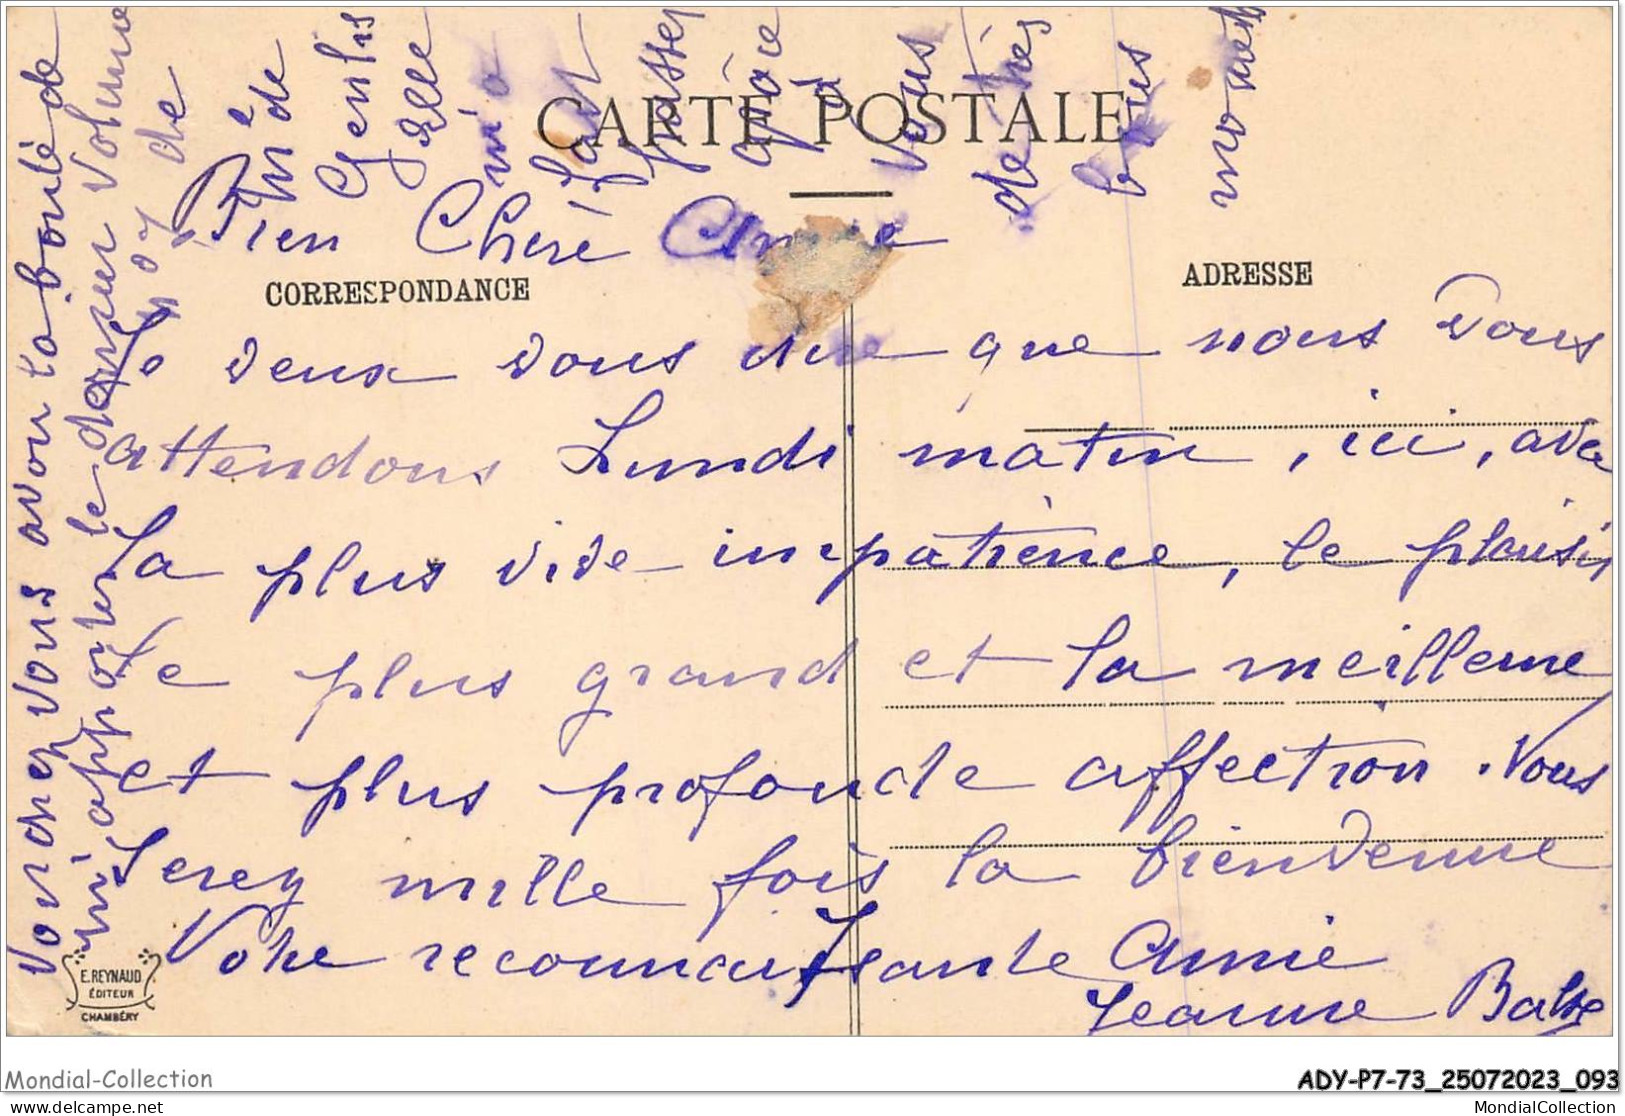 CARTE POSTALE
Bien Chère Amie
CORRESPONDANCE
ADRESSE
Je veux vous dire que nous vous
attendons Lundi matin, ici, avec
la plus vive impatience, le plaisir
le plus grand et la meilleure
et plus profonde affection. Vous
serez mille fois la bienvenue
Votre reconnaissante Amie
Jeanne
Voudrez vous avoir la bonté de
m'apporter le dernier Volume
de
de
Gentus
Elle
m'a
fait
passer
grâce
à
vous
de très
bons
moments
E. REYNAUD
ÉDITEUR
CHAMBÉRY
Mondial-Collection
ADY-P7-73_25072023_093
delcampe.net
MondialCollection